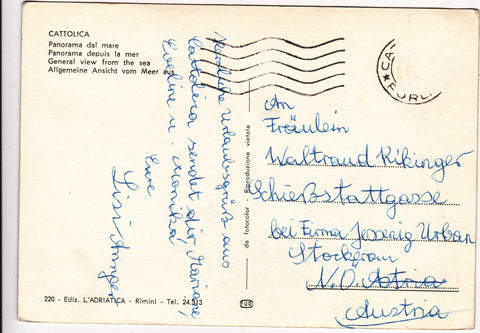 CATTOLICA
Panorama dal mare
Panorama depuis la mer
General view from the sea
Allgemeine Ansicht vom Meer aus
Herzliche Urlaubsgrüße aus
Cattolica sendet dir Marianne,
Eveline u. Monika
Eure
Lisi
da fotocolor - Riproduzione vietata
An
Fräulein
Waltraud Kikinger
Schießstattgasse
bei Firma Urban
Stockerau
N.Ö. Astria
Austria
FORLI
220 - Ediz. L'ADRIATICA - Rimini - Tel. 24.313